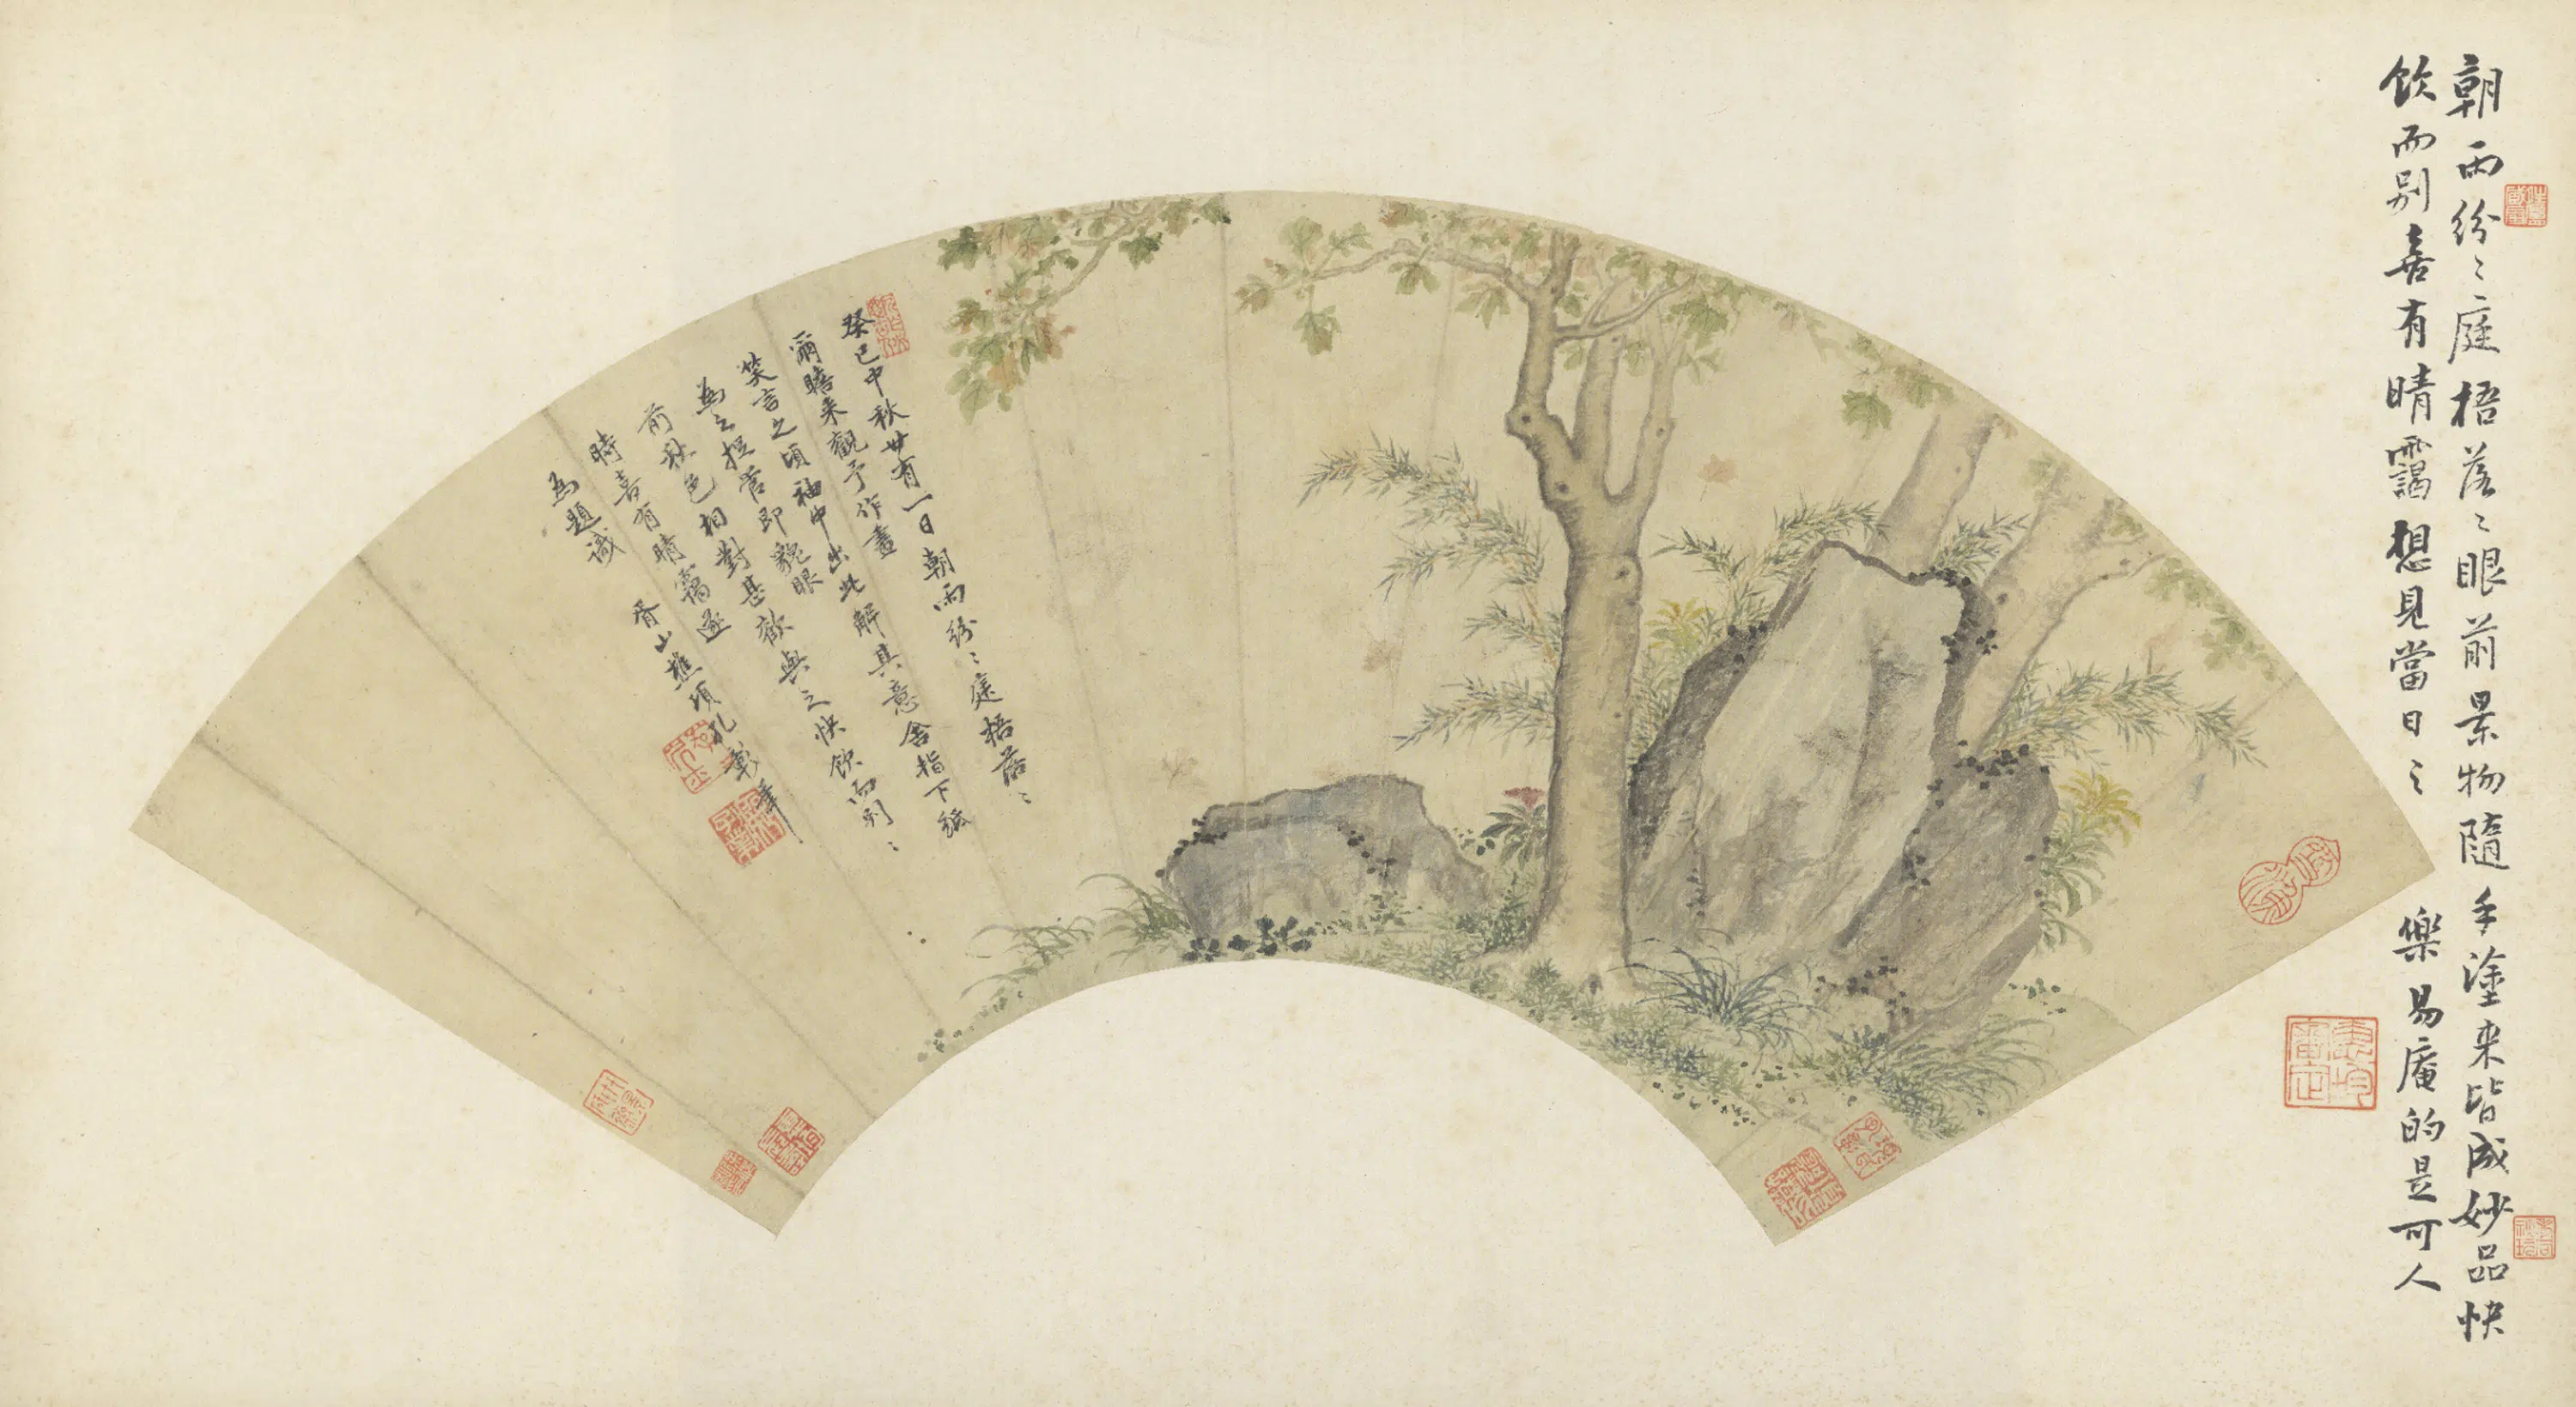 朝雨紛〻庭梧落〻眼前景物隨手塗来皆成妙品快
飲而别喜有晴靄想見當日〻樂易庵的是可人
癸巳中秋廿有一日朝雨紛〻庭梧落〻
窗瞎来觀予作畫解其意含指下紙
笑言之頃袖中出此快飲而别〻
為之捉管即貌眼
前秋色相對甚歡與之
時喜有晴靄遂
為題識
胥山樵項孔彰